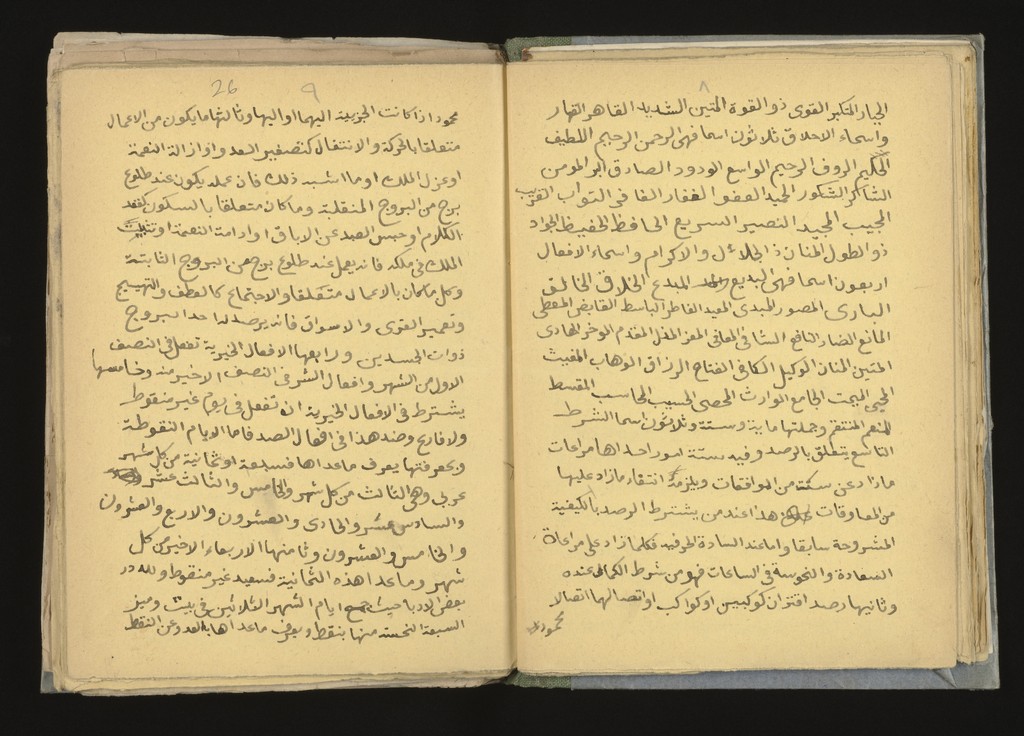 ٨
الجبار المتكبر القوى ذو القوة المتين الشديد القاهر القهار
واسماء الاخلاق ثلاثون اسما فهى الرحمن الرحيم اللطيف
الحليم الروف الرحيم الواسع الودود الصادق البر المومن
الشاكر الشكور الحميد العفو الغفار الغافر التواب القريب
المجيب المجيد النصير السريع الحافظ الحفيظ الجواد
ذو الطول المنان ذا الجلال والاكرام واسماء الافعال
اربعون اسما فهى البديع المبدع الخلاق الخالق
البارى المصور المبدى المعيد الفاطر الباسط القابض المعطى
المانع الضار النافع الشافى المعافى المعز المذل المقدم الموخر الهادى
المتين المنان الوكيل الكافى الفتاح الرزاق الوهاب المغيث
المحيى المميت الجامع الوارث المحصى الحسيب الحاسب المقسط
المنعم المنتقم وجملتها ماية وستة وثلاثون اسما الشرط
التاسع يتعلق بالرصد وفيه ستة امور احداها مراعات
مازاد عن ستة من الموافقات ويلزمه انتقاء مازاد عليها
من المعاوقات هذا عند من يشترط الرصد بالكيفية
المشروحة سابقا واما عند السادة الحرفيه فكلما زاد على مراعاة
السعادة والنحوسة فى الساعات فهو من شرط الكمال عنده
وثانيها رصد اقتران كوكبين او كواكب او اتصالها اتصالا
محمودا
26 ٩
محمودا اذا كانت الجزيية اليهما او اليها وثالثها ما يكون من الاعمال
متعلقا بالحركة والانتقال كتصفير العدو او ازالة النعمة
او عزل الملك او ما اشبه ذلك فان عمله يكون عند طلوع
برج من البروج المنقلبة وما كان متعلقا بالسكون كعقد
الكلام او حبس العبد عن الاباق او ادامة النعمة او تثبيت
الملك فى ملكه فانه يعمل عند طلوع برج من البروج الثابتة
وكل ما كان بالاعمال متعلقا والاجتماع كالعطف والتهييج
وتعمير القرى والاسواق فانه يرصد له احد البروج
ذوات الجسدين ورابعها الافعال الخيرية تفعل فى النصف
الاول من الشهر وافعال الشر فى النصف الاخير منه وخامسها
يشترط فى الافعال الخيرية ان تفعل فى يوم غير منقوط
ولا فارغ وضد هذا فى افعال الضد فاما الايام المنقوطة
وبمعرفتها يعرف ماعداها فسبعة او ثمانية من كل شهر
عربى وهى الثالث من كل شهر والخامس والثالث عشر
والسادس عشر والحادى والعشرون والاربع والعشرون
والخامس والعشرون وثامنها الاربعاء الاخير من كل
شهر وماعدا هذه الثمانية فسعيد غير منقوط ولله در
بعض الادبا حيث جمع ايام الشهر الثلاثين فى بيت وميز
السبعة النحسة منها بنقط ويعرف ماعداها بالعدو عن النقط